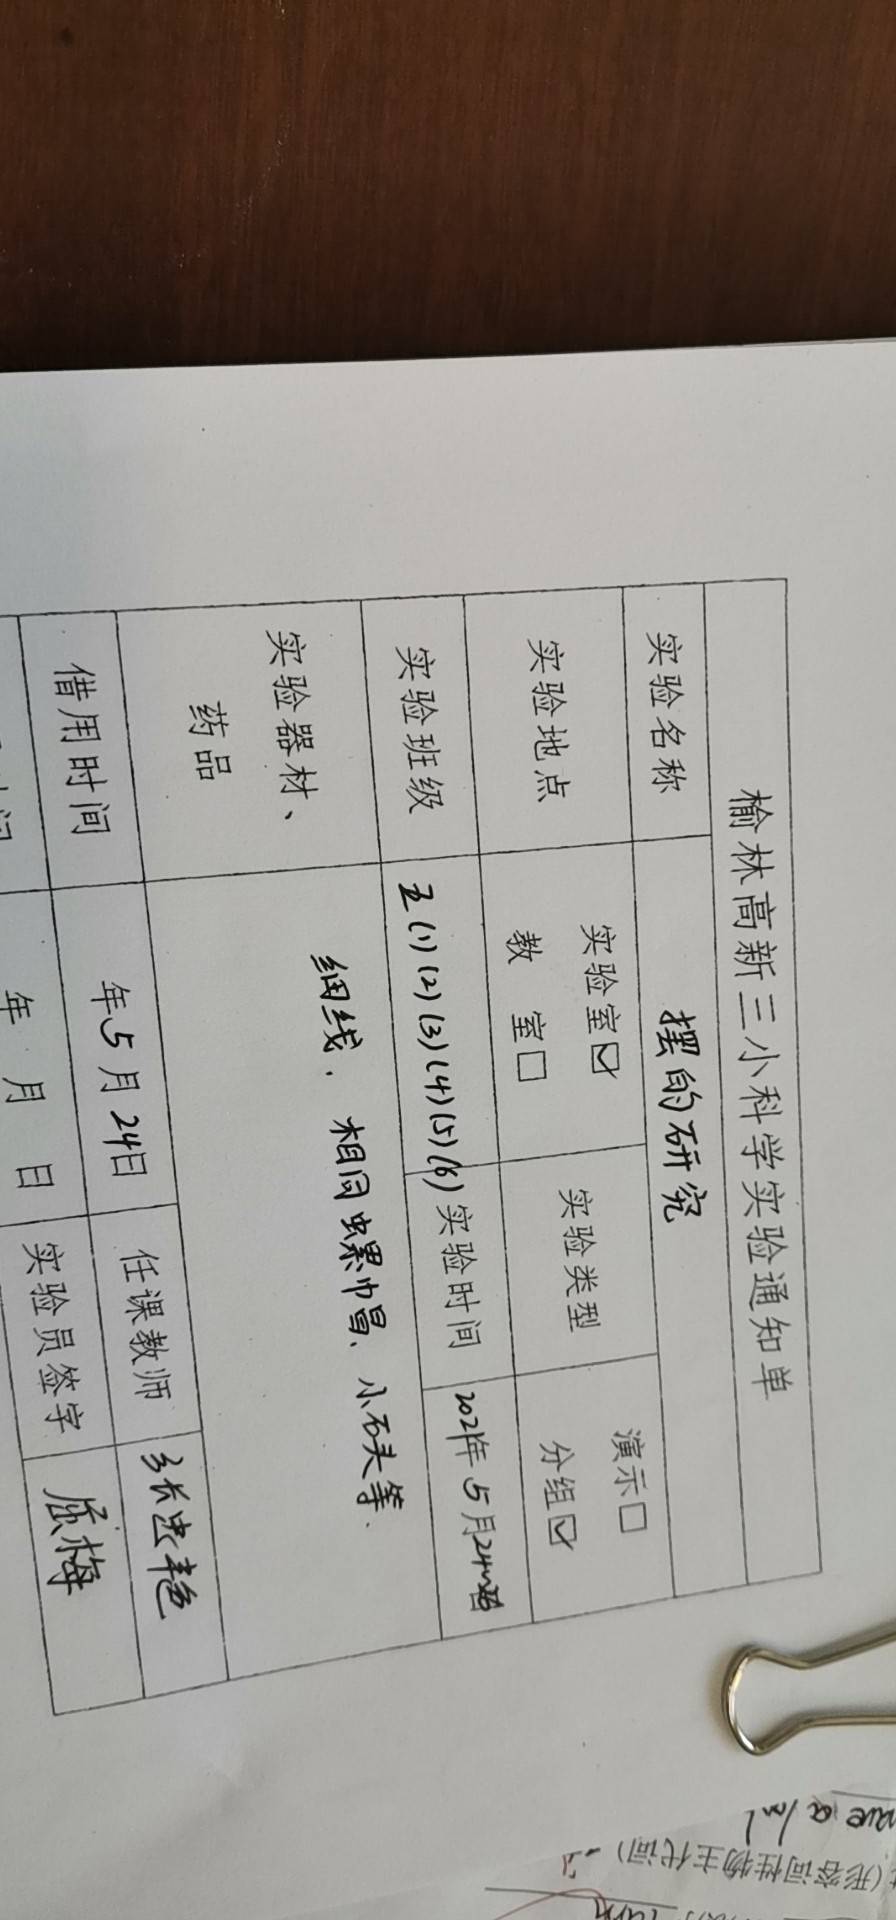 榆林高新三小科学实验通知单
实验名称 摆的研究
实验地点 实验室☑ 实验类型 演示□
教 室□ 分组☑
实验班级 五(1)(2)(3)(4)(5)(6) 实验时间 2021年5月24
实验器材、
药品
细线、相同螺帽、小石头等.
借用时间 年5月24日 任课教师 张忠艳
年 月 日 实验员签字 屈梅
(形容词性物主代词)